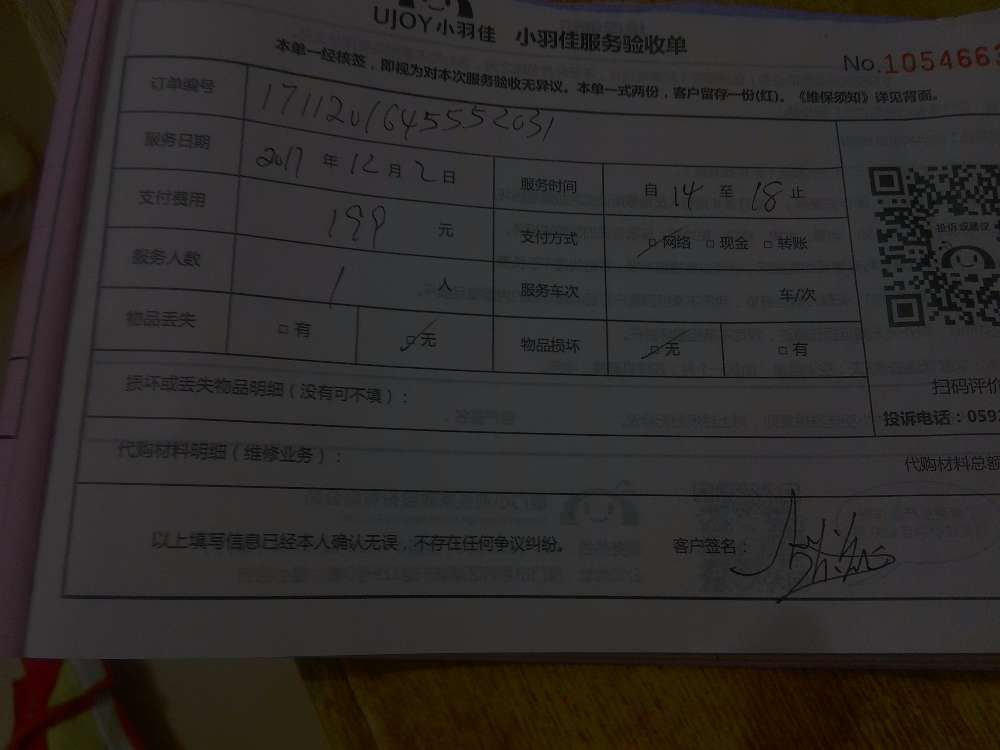 UJOY小羽佳 小羽佳服务验收单
No.1054663
本单一经核签，即视为对本次服务验收无异议。本单一式两份，客户留存一份(红)。《维保须知》详见背面。
订单编号 1711201645552031
服务日期 2017年12月2日 服务时间 自14至18止
支付费用 199元 支付方式 □网络 □现金 □转账
服务人数 1人 服务车次 车/次
物品丢失 □有 □无 物品损坏 □无 □有
投诉或建议
扫码评价
损坏或丢失物品明细（没有可不填）：
投诉电话：059
代购材料明细（维修业务）：
代购材料总额
以上填写信息已经本人确认无误，不存在任何争议纠纷。 客户签名：